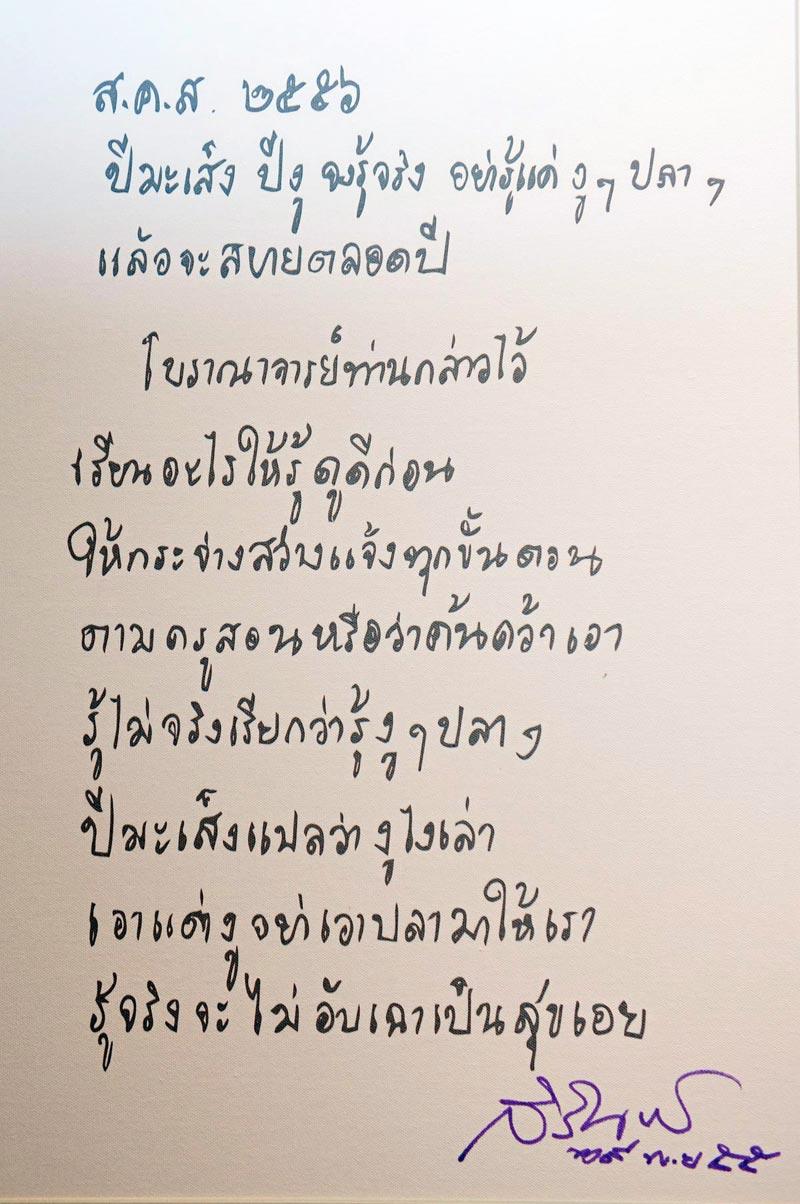 ส.ค.ส. ๒๕๕๖
ปีมะเส็ง ปีงู จงรู้จริง อย่ารู้แค่ งูๆ ปลาๆ
แล้วจะสบายตลอดปี
โบราณาจารย์ท่านกล่าวไว้
เรียนอะไรให้รู้ดูดีก่อน
ให้กระจ่างสว่างแจ้งทุกขั้นตอน
ตามครูสอนหรือว่าค้นคว้าเอา
รู้ไม่จริงเรียกว่ารู้งูๆปลาๆ
ปีมะเส็งแปลว่างูไงเล่า
เอาแต่งูอย่าเอาปลามาให้เรา
รู้จริงจะไม่อับเฉาเป็นสุขเอย
สิรินธร
พ.ย ๕๕